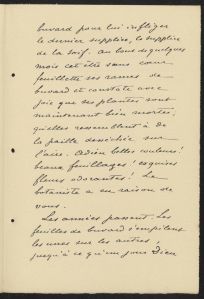 buvard pour lui infliger
le dernier supplice, le supplice
de la soif. Au bout de quelques
mois cet été sans cœur
feuillette ses rames de
buvard et constate avec
joie que ses plantes sont
maintenant bien mortes,
qu'elles ressemblent à de
la paille desséchée sur
l'aire. Adieu belles couleurs!
beaux feuillages! exquises
fleurs odorantes! Le
botaniste a eu raison de
vous.
Les années passent. Les
feuilles de buvard s'empilent
les unes sur les autres,
jusqu'à ce qu'un jour Dieu